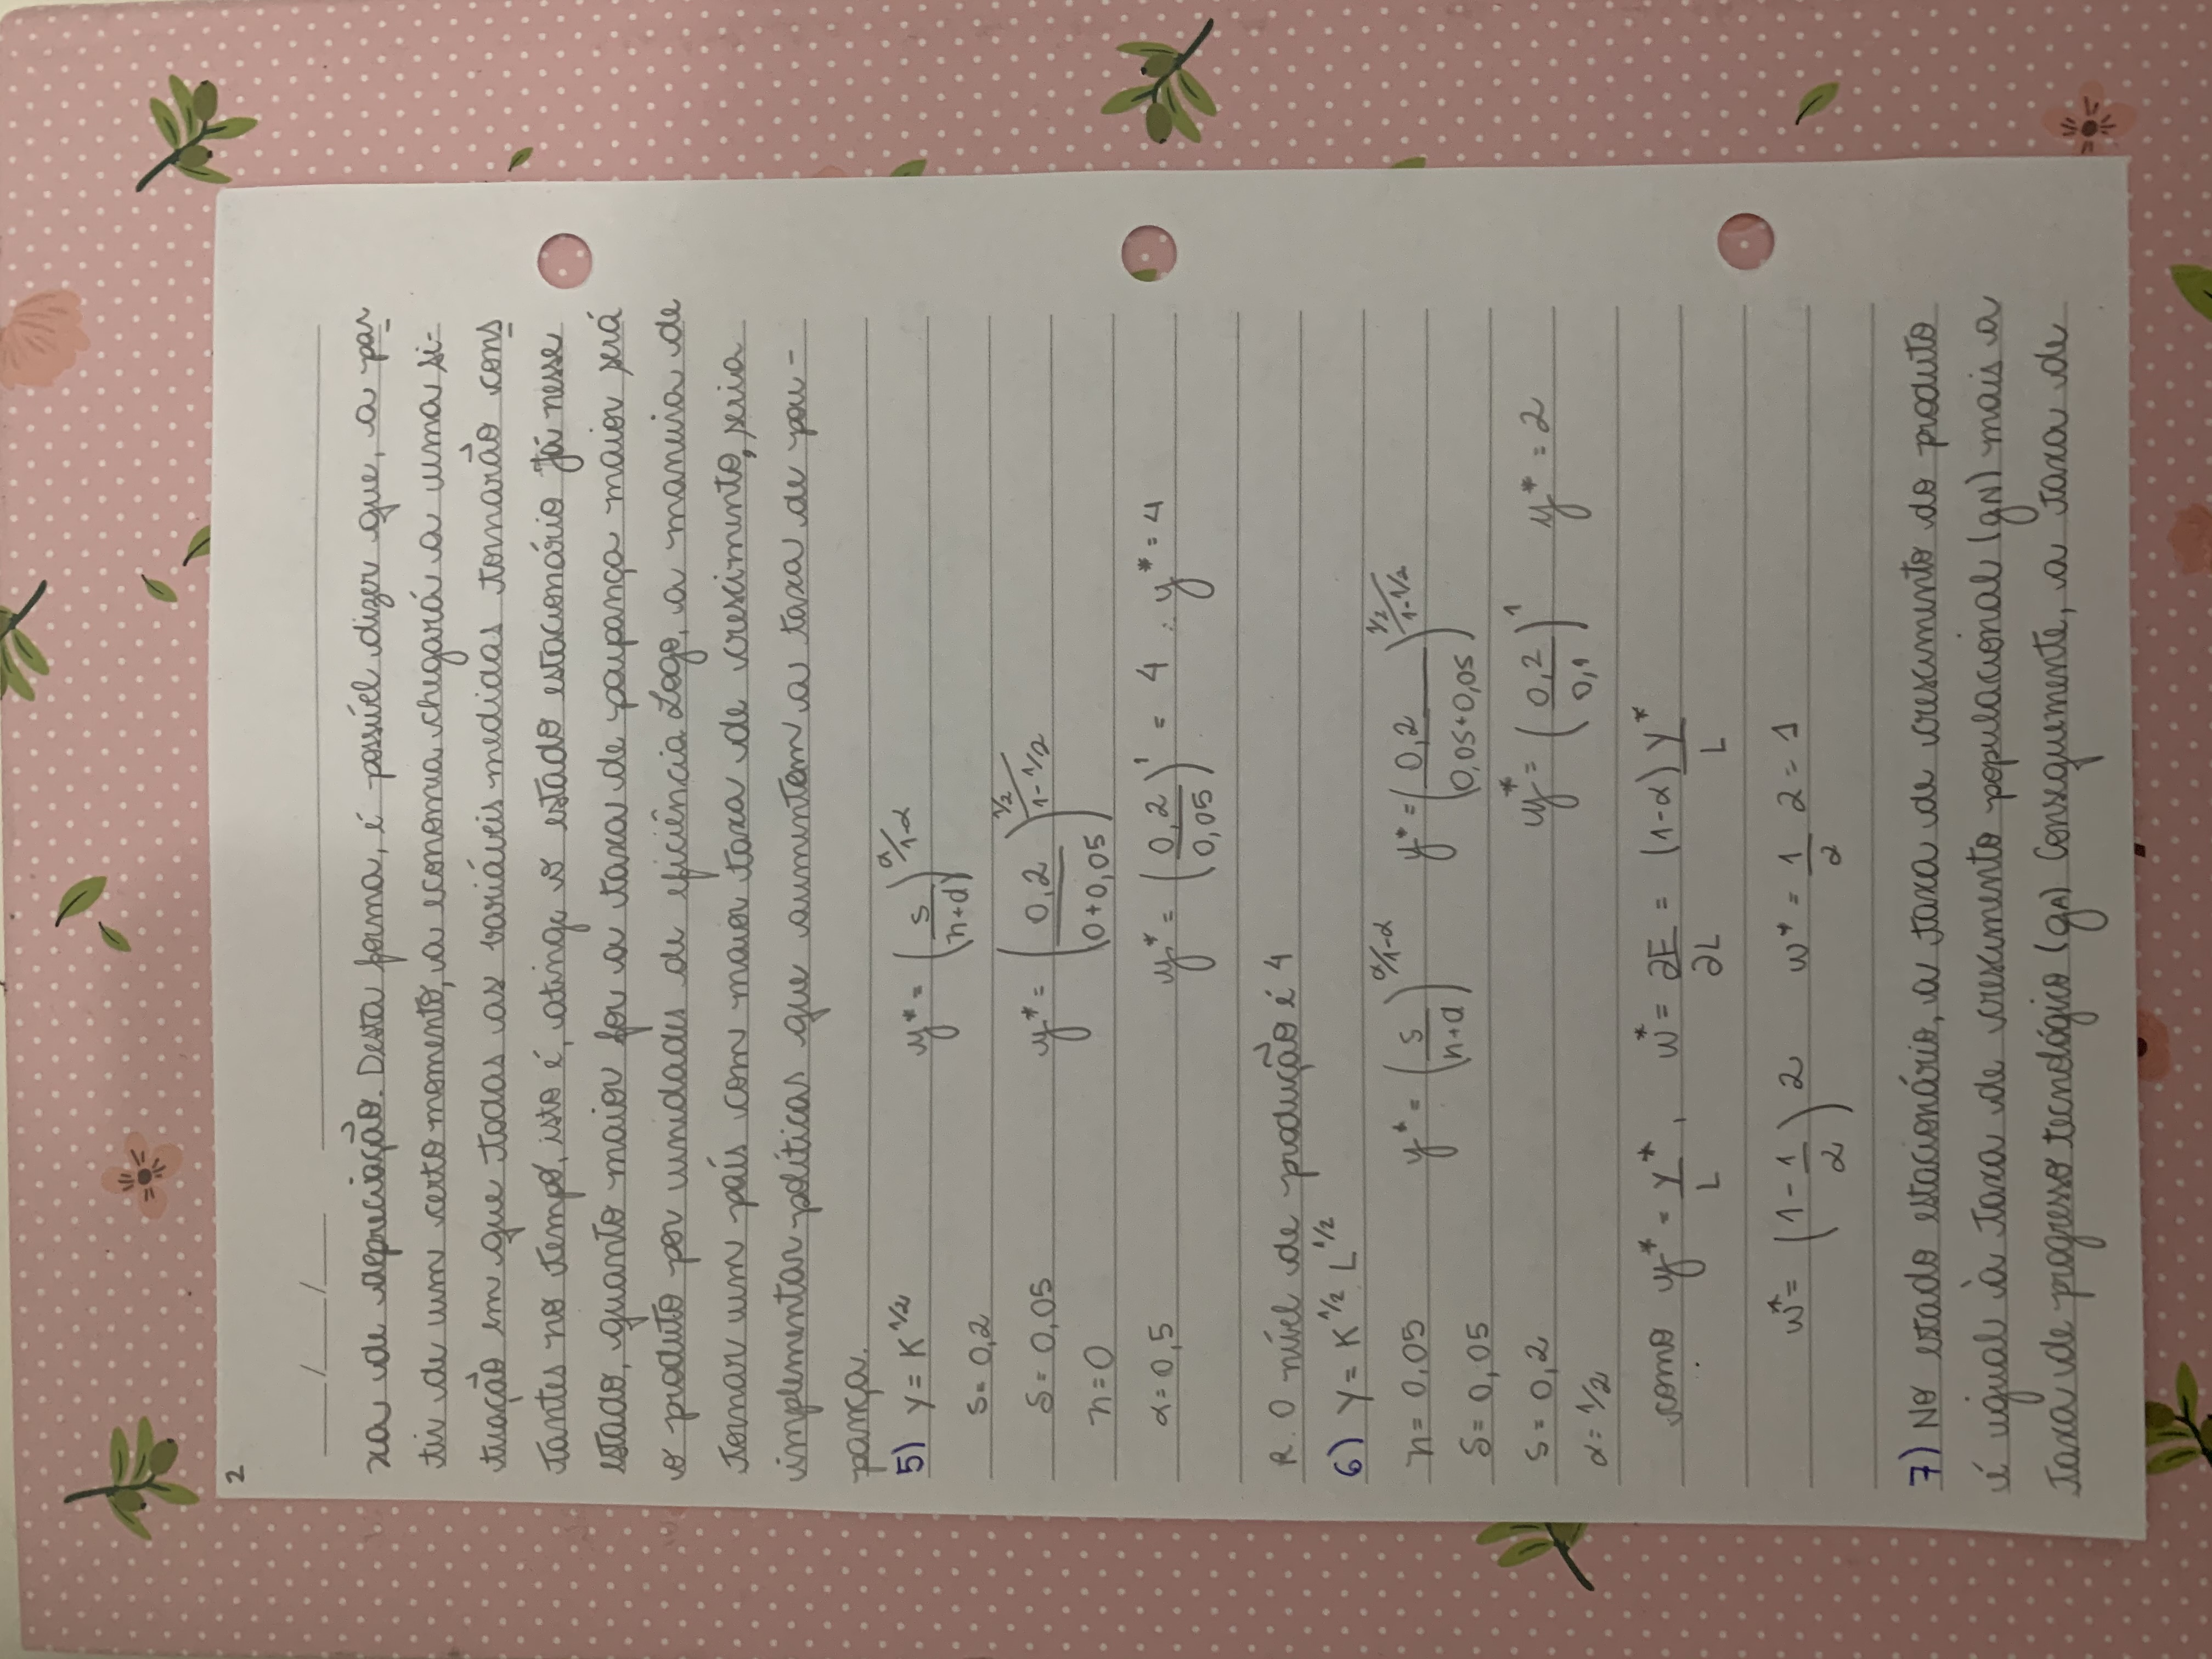 2
___/___/___
xa de depreciação. Desta forma, é possível dizer que, a par
tir de um certo momento, a economia chegará a uma si-
tuação em que todas as variáveis medidas tornarão cons
tantes no tempo, isto é, atinge o estado estacionário Já nesse
estado, quanto maior for a taxa de poupança maior será
o produto por unidades de eficiência Logo, a maneira de
tornar um país com maior taxa de crescimento, seria
implementar políticas que aumentem a taxa de pou-
pança.
5) Y = K^1/2 y* = (s/(n+d))^α/1-α
s = 0,2
δ = 0,05 y* = (0,2/(0+0,05))^(1/2)/(1-1/2)
n = 0
α = 0,5 y* = (0,2/0,05)^1 = 4 ∴ y* = 4
R. O nível de produção é 4
6) Y = K^1/2 L^1/2
n = 0,05 y* = (s/(n+d))^α/1-α y* = (0,2/(0,05+0,05))^(1/2)/(1-1/2)
δ = 0,05
s = 0,2 y* = (0,2/0,1)^1 y* = 2
α = 1/2
como y* = Y*/L, w* = ∂F/∂L = (1-α) Y*/L
w* = (1 - 1/2) 2 w* = 1/2 2 = 1
7) No estado estacionário, a taxa de crescimento do produto
é igual à taxa de crescimento populacional (gN) mais a
taxa de progresso tecnológico (gA) Consequemente, a taxa de